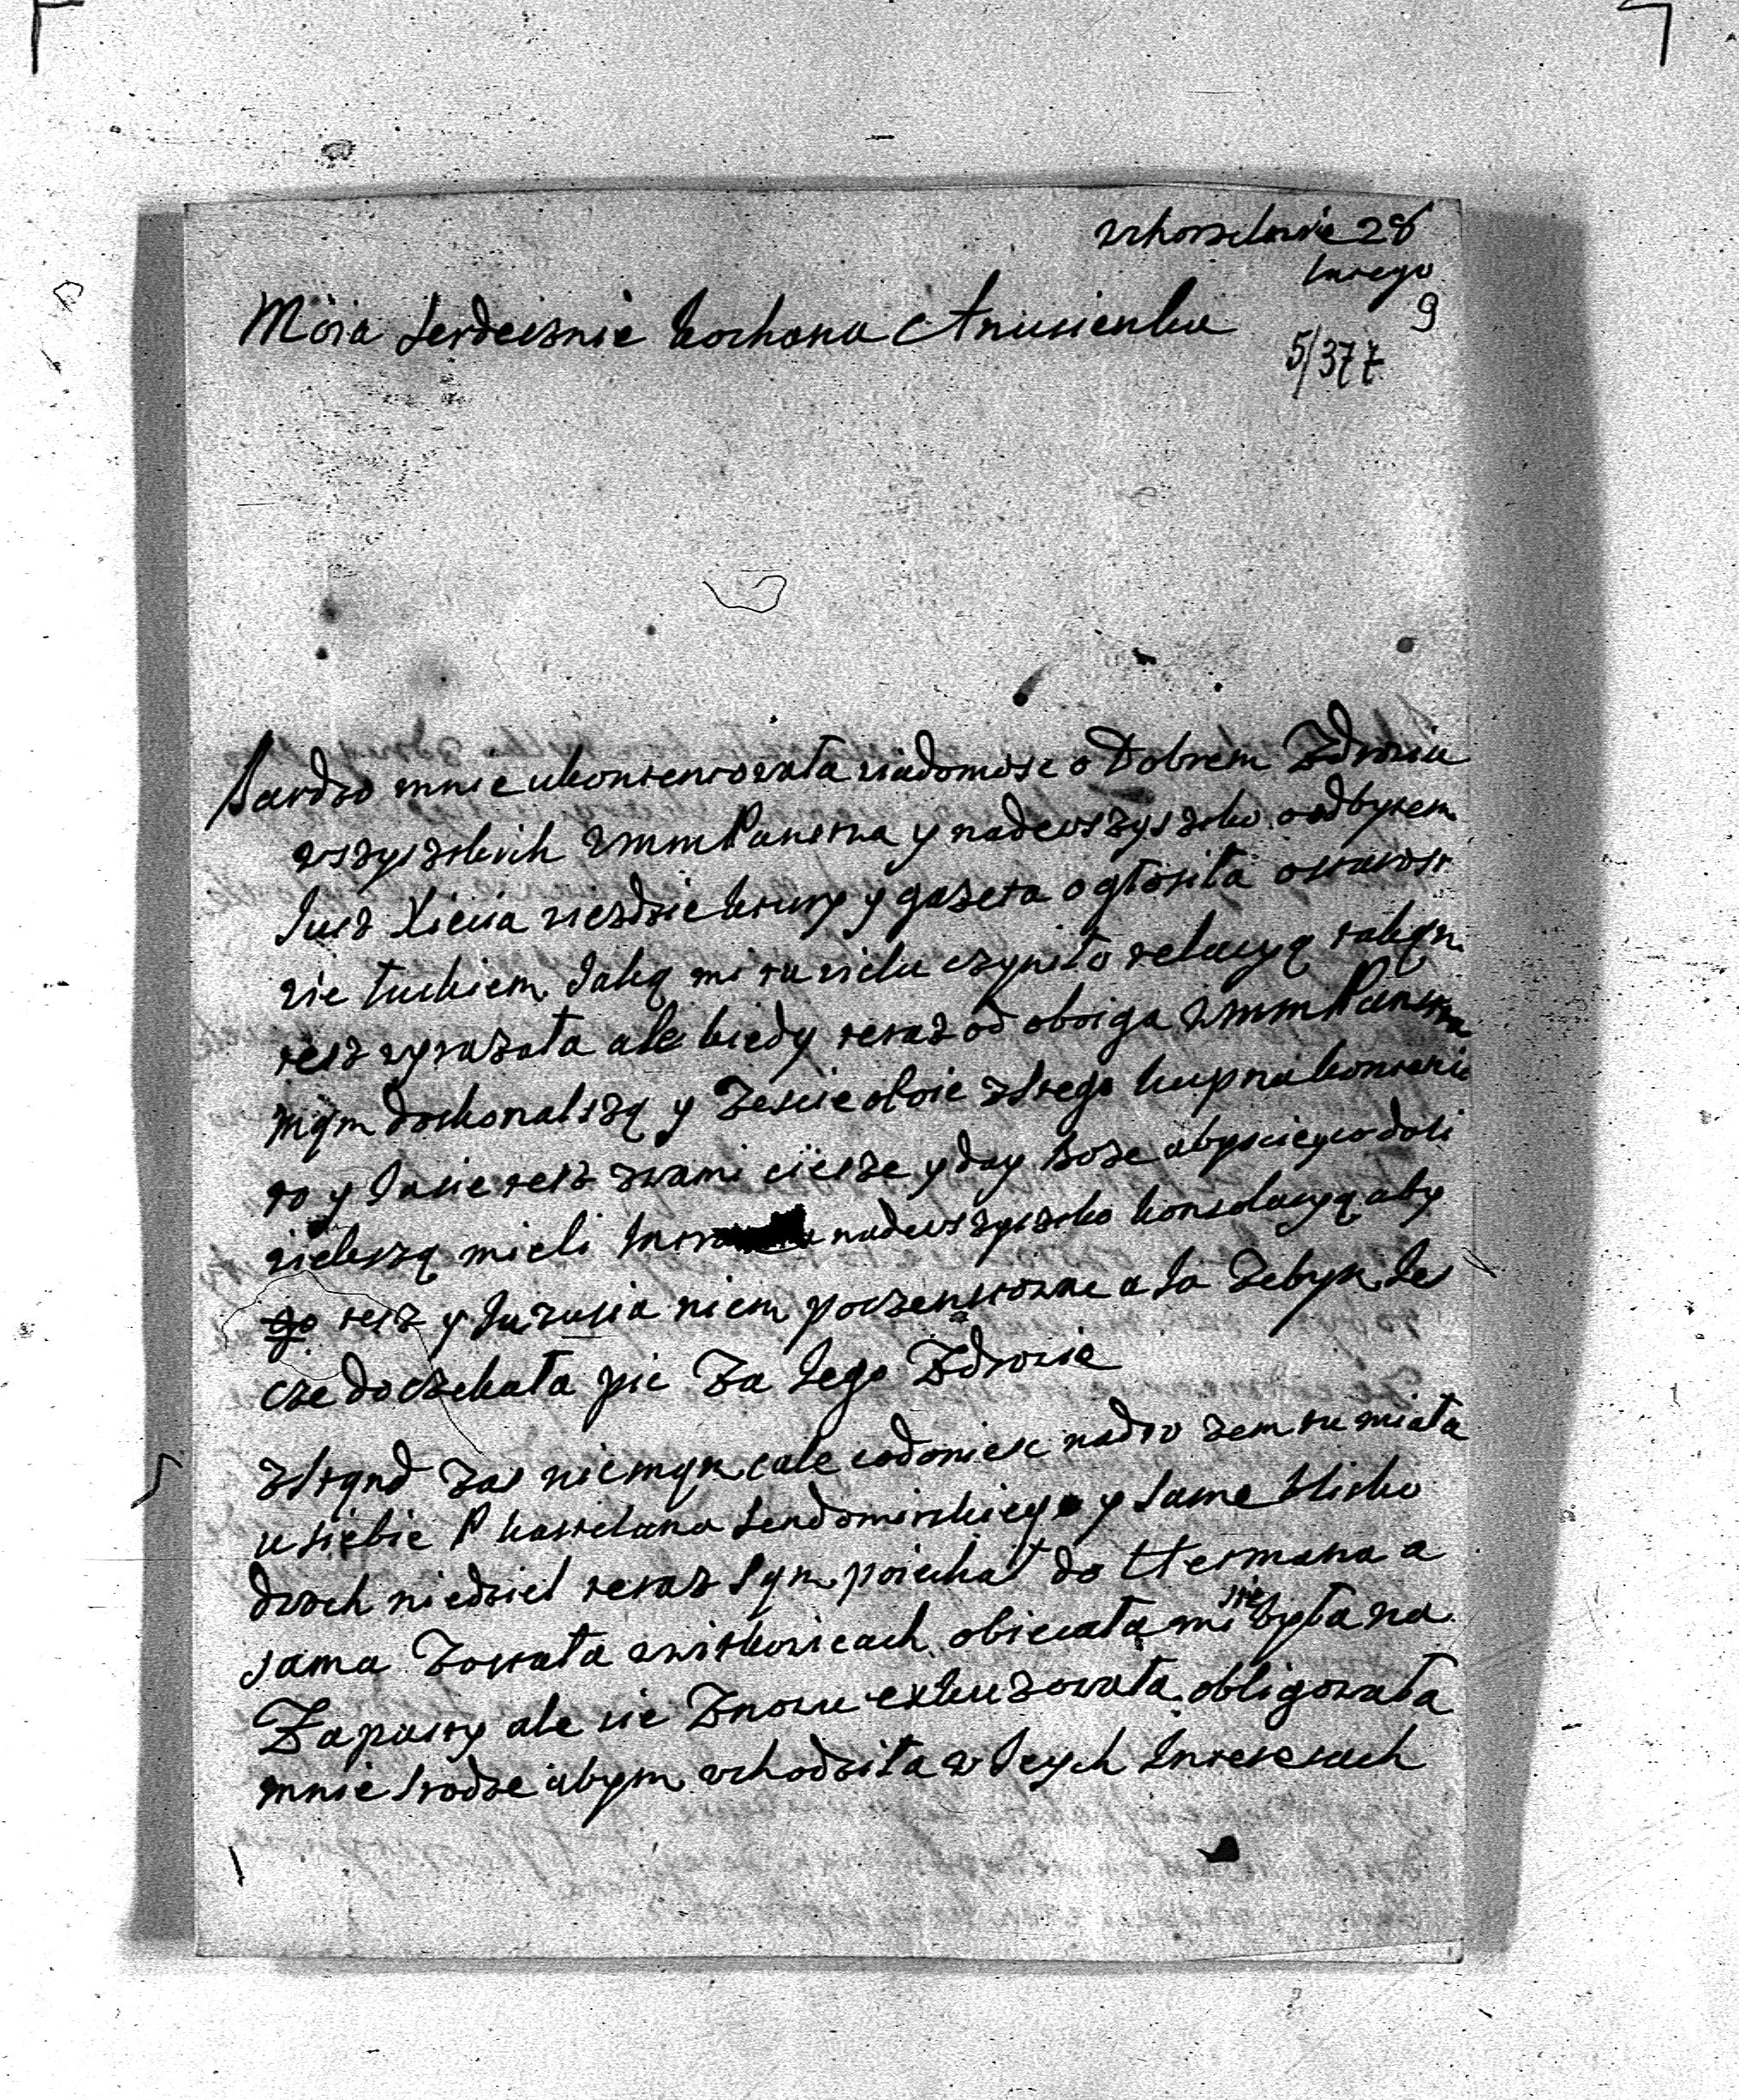 w chorzelowie 28
lutego
9
Moia serdecznie kochana Anusienku
5/377
Bardzo mnie ukontentowała wiadomosc o Dobrem Zdrowiu
wszyszstkich WmmPanstwa y nadewszyszstko o odbytem
iusz Xiecia wiezdzie ktury y gazeta ogłosiła
sie tuckiem Jaką mi tu wielu czyniło relacyą takąm
tesz wyrazała ale kiedy teraz od oboiga WmmPanstwa
mąm doskonalszą y Zescie oboie z tego kupna kontenci
to y Ja sie tesz z wami ciesze y day Boze abyscie y co dali
wiekszą mieli nadewszyszstko konsolacyą aby
go tesz y Juzusia niem poczenstowac a Ja Zebym Jes
cze doczekała pic Za Jego Zdrowie
z stąnd Zas niemąm cale co doniesc nad to zem tu miała
u siebie P kasztelana Sendomirskiego y Same blisko
dwoch niedziel teraz sąm poiechał do Hetmana a
sama Została w witkowicach obiecała mi sie była na
Zapusty ale sie Znowu exkuzowała obligowała
mnie srodze abym wchodziła w Jeych Interesach